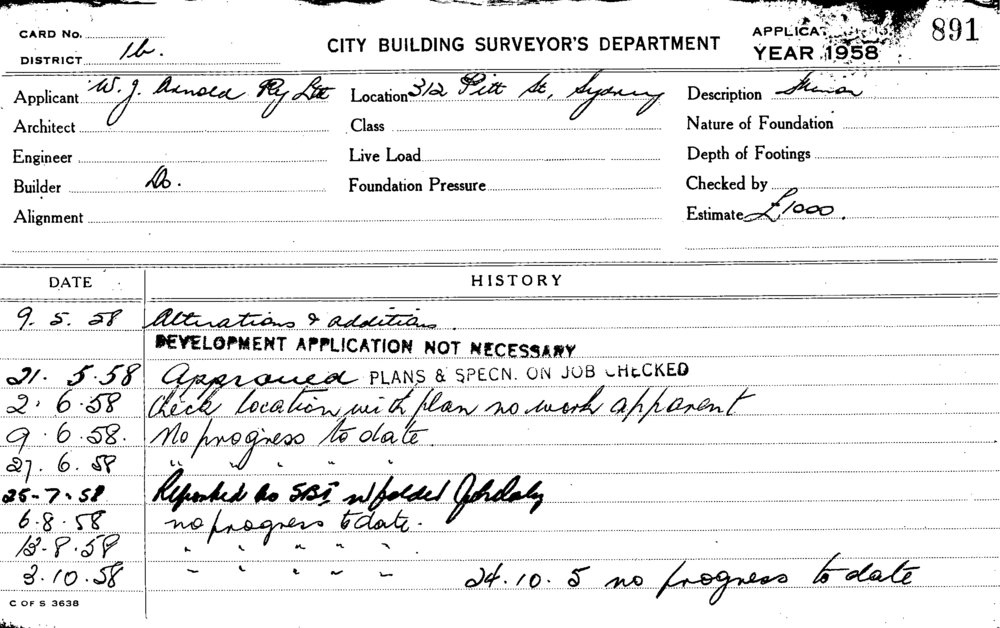 CARD No.
DISTRICT 1b.
CITY BUILDING SURVEYOR'S DEPARTMENT
APPLICA
YEAR 1958
891
Applicant W. J. Arnold Pty Ltd
Location 312 Pitt St, Sydney
Description
Architect
Class
Nature of Foundation
Engineer
Live Load
Depth of Footings
Builder Do.
Foundation Pressure
Checked by
Alignment
Estimate £1000.
DATE
HISTORY
9. 5. 58 Alterations & additions.
DEVELOPMENT APPLICATION NOT NECESSARY
21. 5. 58 Approved PLANS & SPECN. ON JOB CHECKED
2. 6. 58 Check location with plan no work apparent
9. 6. 58. No progress to date.
27. 6. 58 " " " " "
25-7-58 Reported to
6. 8. 58 no progress to date.
13. 8. 58 " " " " "
3. 10. 58 " " " " " 24. 10. 5 no progress to date
C OF S 3638